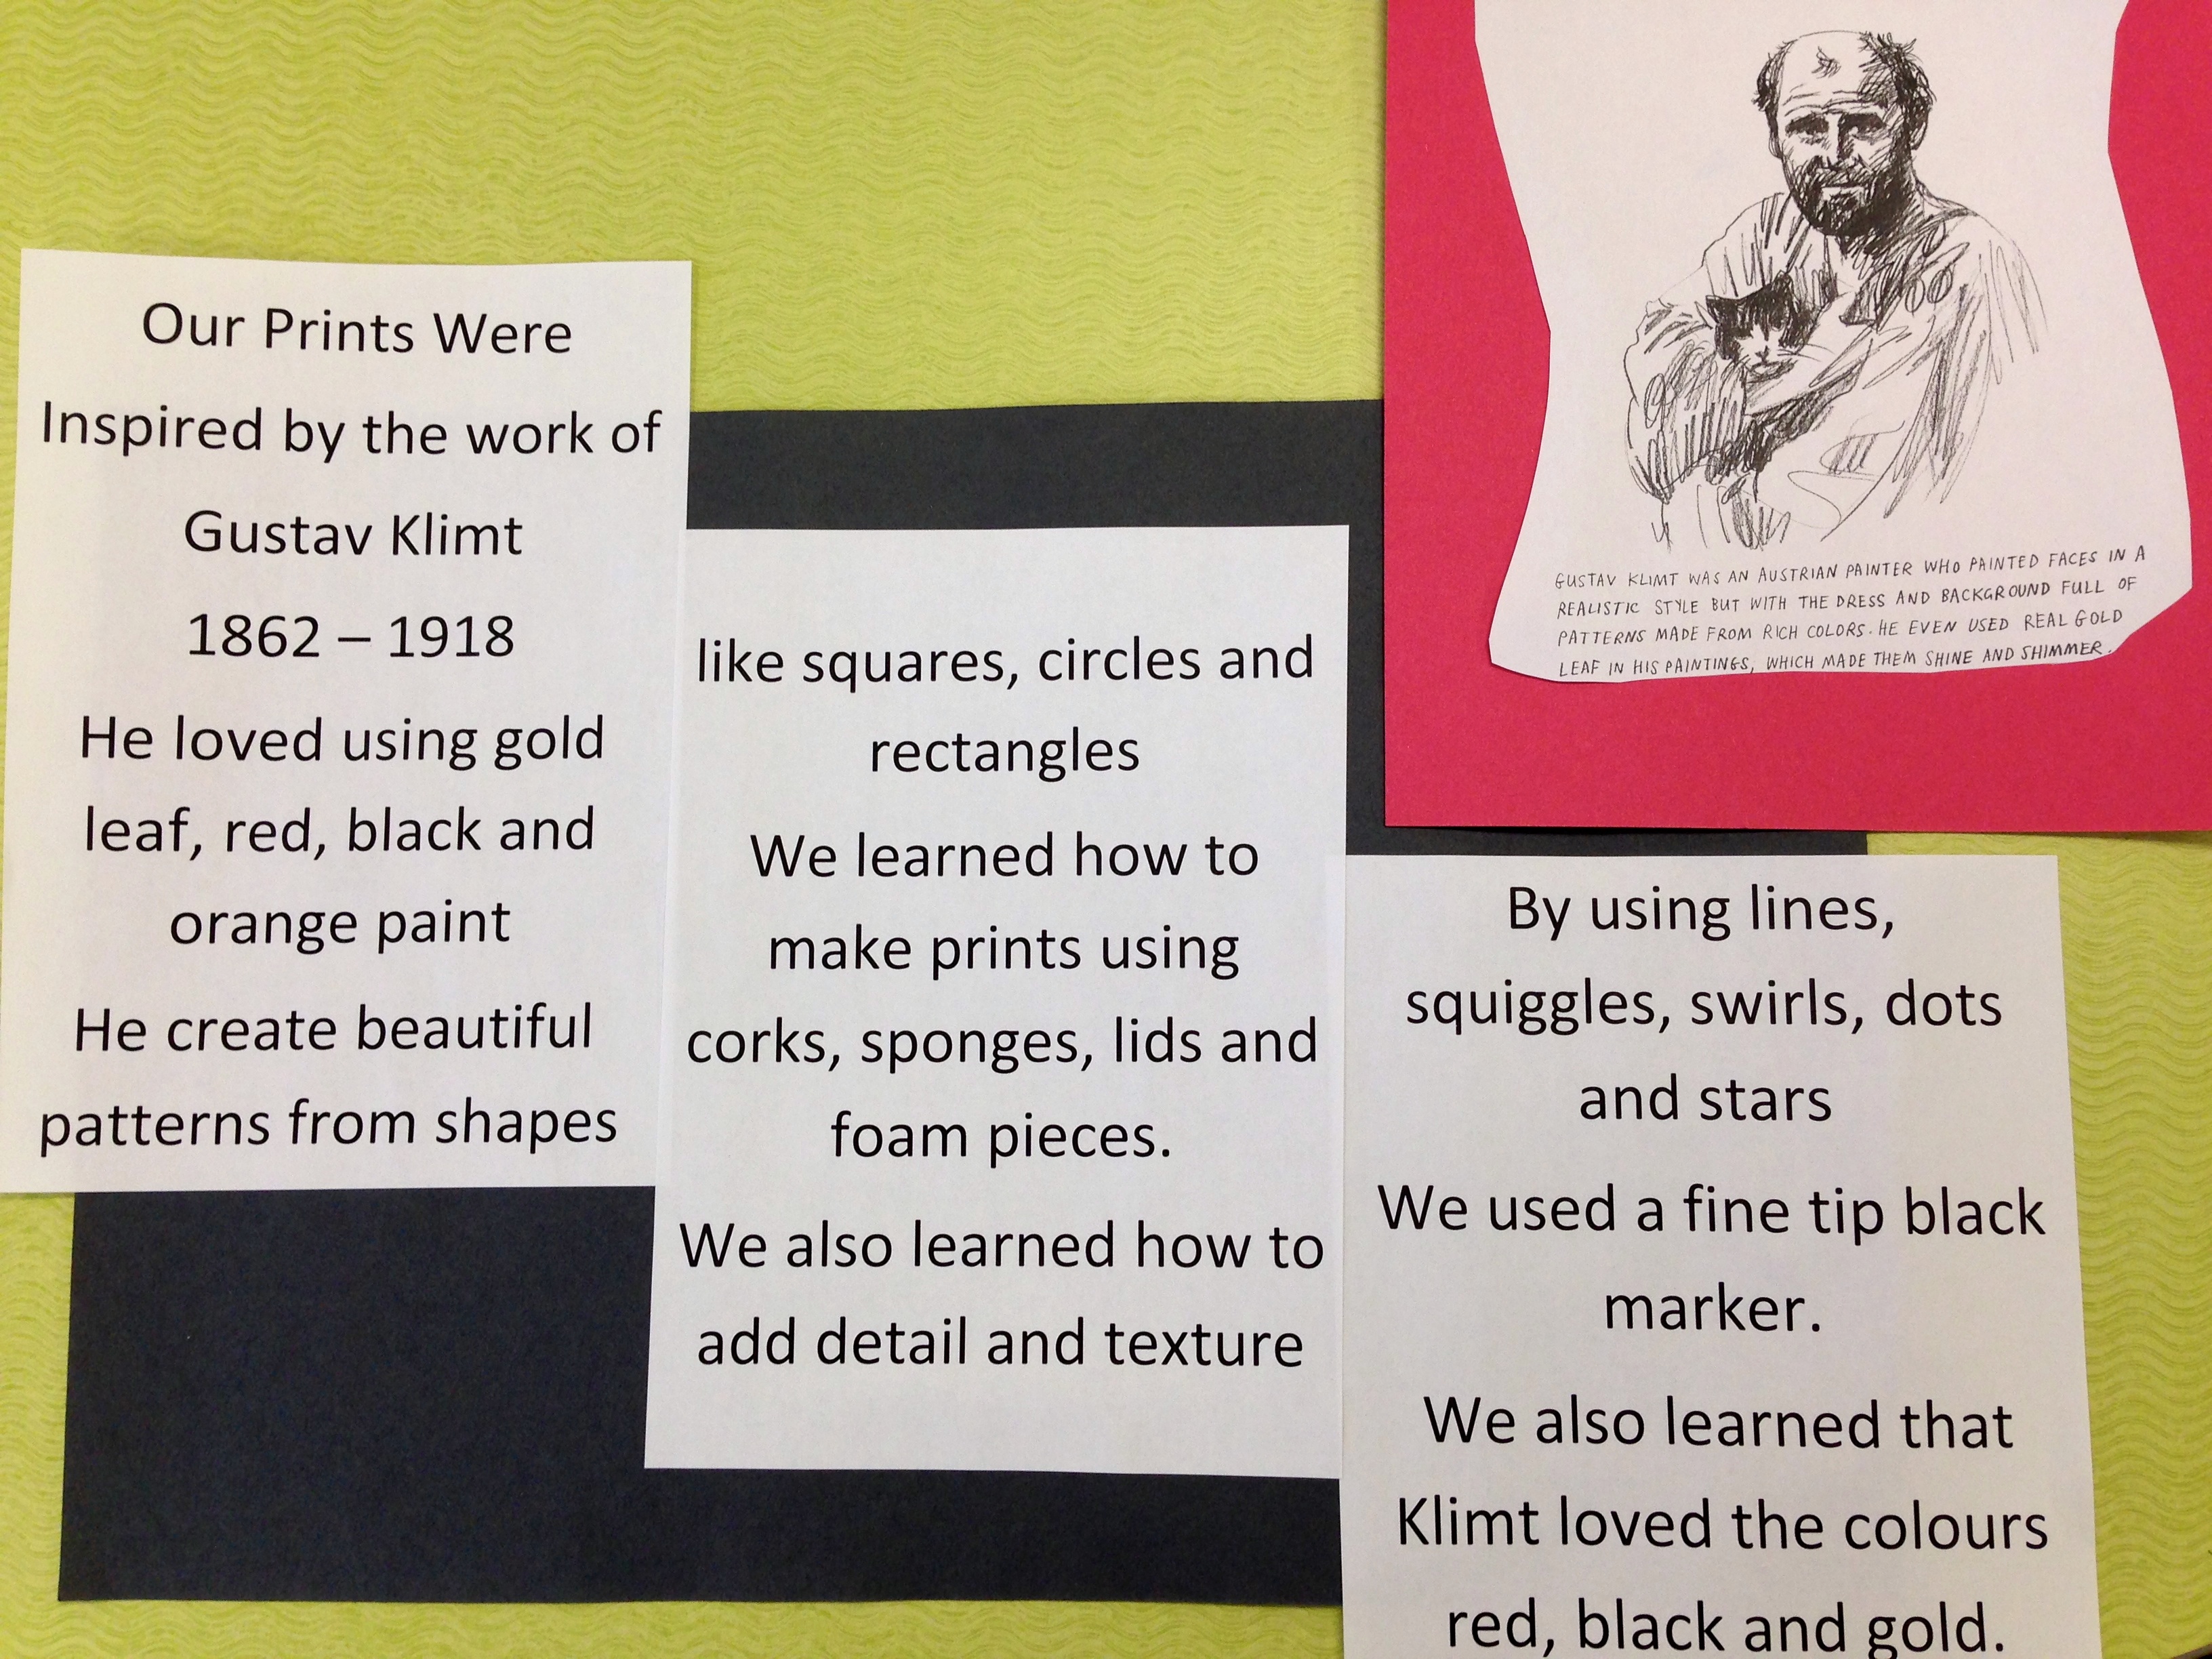 Our Prints Were
Inspired by the work of
Gustav Klimt
1862 – 1918
He loved using gold
leaf, red, black and
orange paint
He create beautiful
patterns from shapes
like squares, circles and
rectangles
We learned how to
make prints using
corks, sponges, lids and
foam pieces.
We also learned how to
add detail and texture
By using lines,
squiggles, swirls, dots
and stars
We used a fine tip black
marker.
We also learned that
Klimt loved the colours
red, black and gold.
GUSTAV KLIMT WAS AN AUSTRIAN PAINTER WHO PAINTED FACES IN A
REALISTIC STYLE BUT WITH THE DRESS AND BACKGROUND FULL OF
PATTERNS MADE FROM RICH COLORS. HE EVEN USED REAL GOLD
LEAF IN HIS PAINTINGS, WHICH MADE THEM SHINE AND SHIMMER.